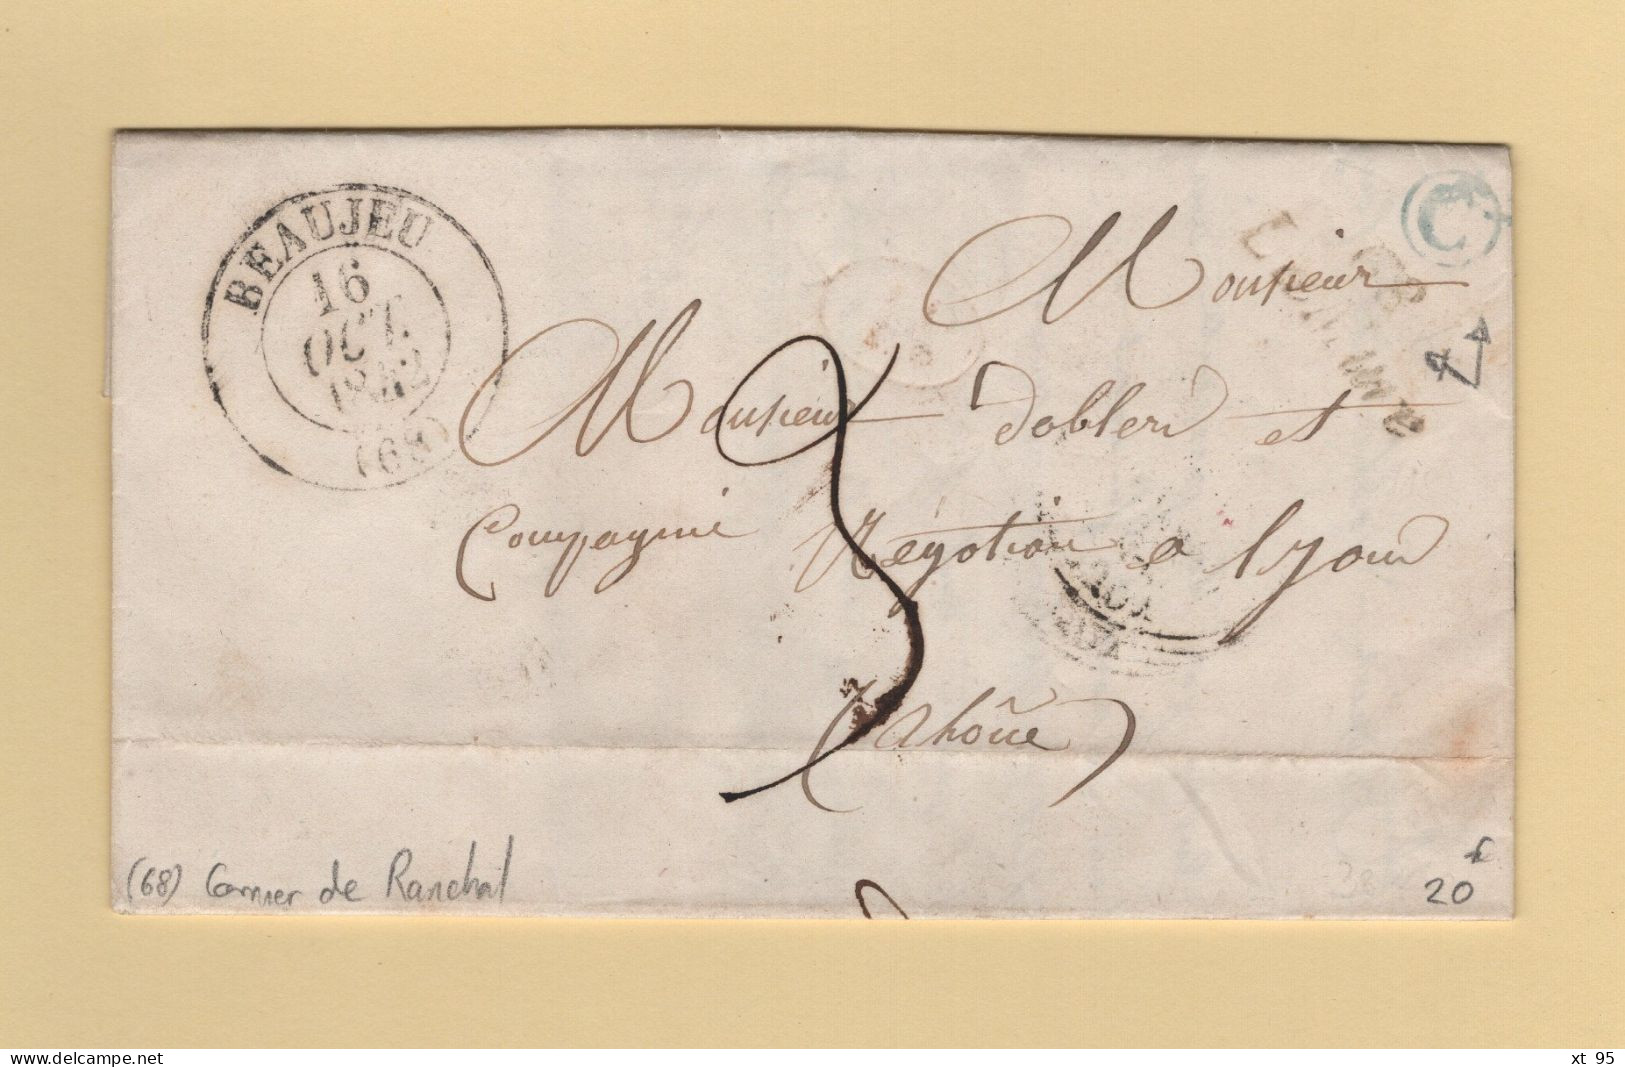 BEAUJEU
16
OCT.
1842
(68)
C
Monsieur
Monsieur Dobler et
Compagnie Négotian a Lyon
(Rhône)
3
(68) Courrier de Ranchal
20 f
xt 95